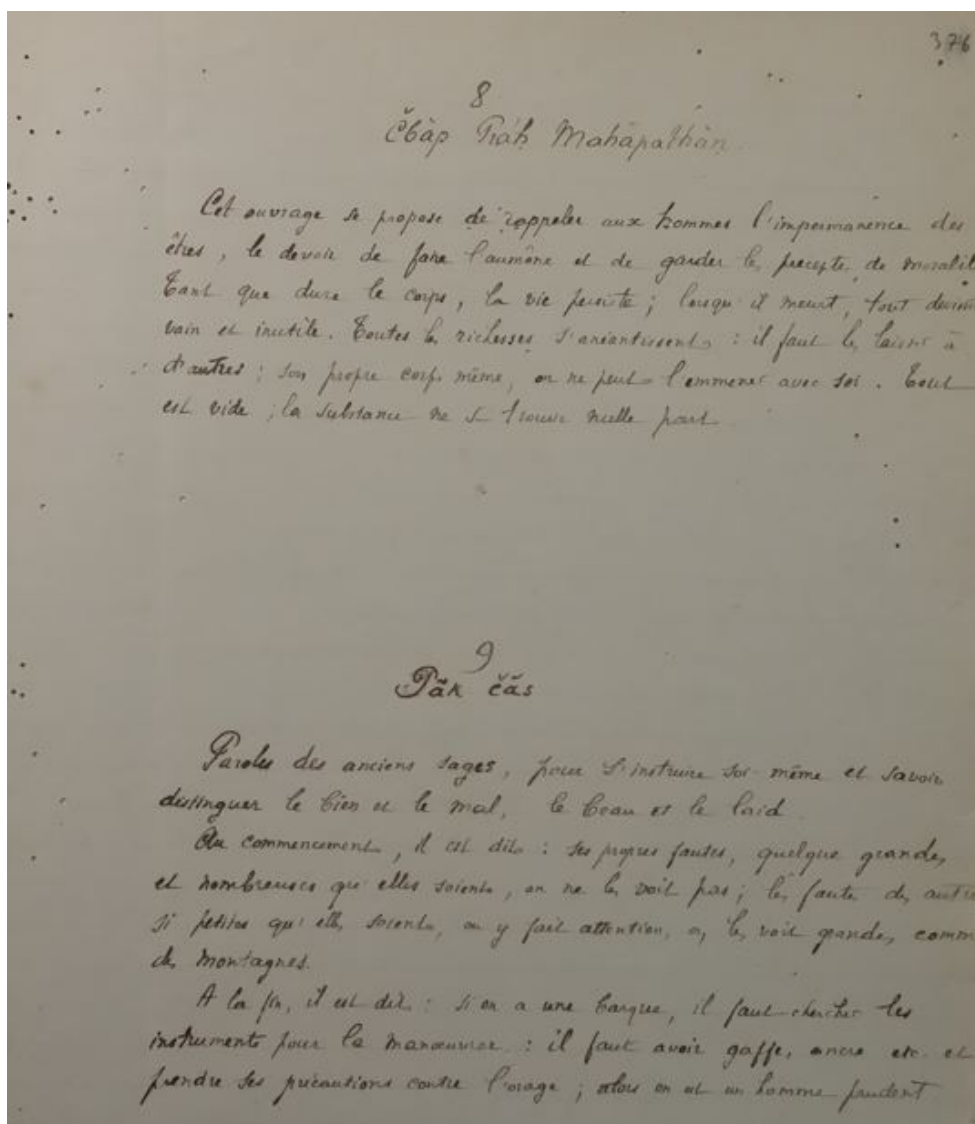 376
8
Čbàp Práh Mahāpathān.
Cet ouvrage se propose de rappeler aux hommes l'impermanence des
êtres, le devoir de faire l'aumône et de garder les préceptes de moralit
Tant que dure le corps, la vie persiste ; lorsqu'il meurt, tout devient
vain et inutile. Toutes les richesses s'anéantissent : il faut les laisser à
d'autres ; son propre corps même, on ne peut l'emmener avec soi. Tout
est vide ; la substance ne se trouve nulle part
9
Pāk čăs
Paroles des anciens sages, pour s'instruire soi-même et savoir
distinguer le bien et le mal, le beau et le laid.
Au commencement, il est dit : ses propres fautes, quelque grandes
et nombreuses qu'elles soient, on ne les voit pas ; les fautes des autres
si petites qu'elles soient, on y fait attention, on les voit grandes comm
des montagnes.
A la fin, il est dit : si on a une barque, il faut chercher les
instruments pour la manœuvrer : il faut avoir gaffe, ancre etc. et
prendre ses précautions contre l'orage ; alors on est un homme prudent